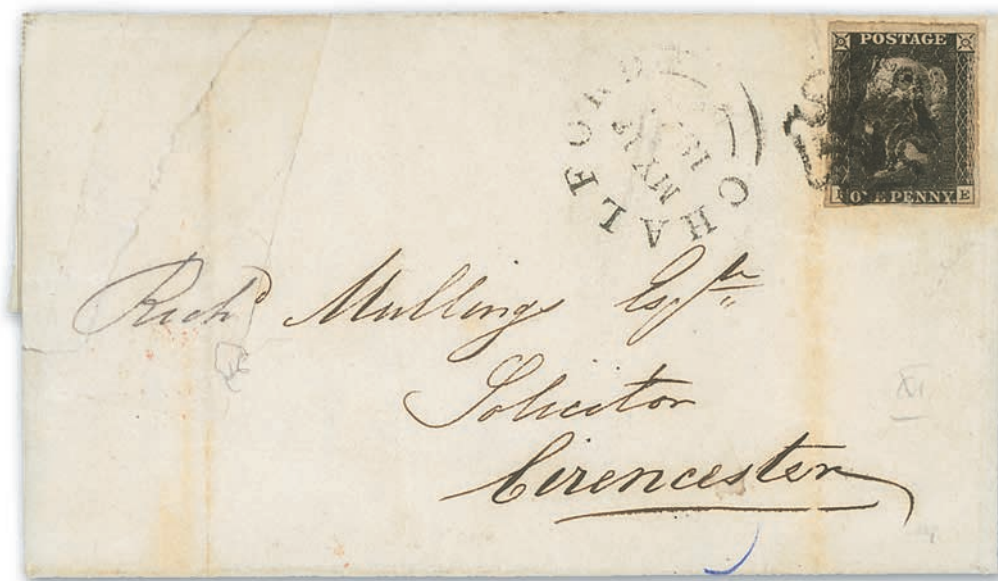 POSTAGE
ONE PENNY.
E
CHALFORD
MY
Richd Mullings Esqre
Solicitor
Cirencester
XI